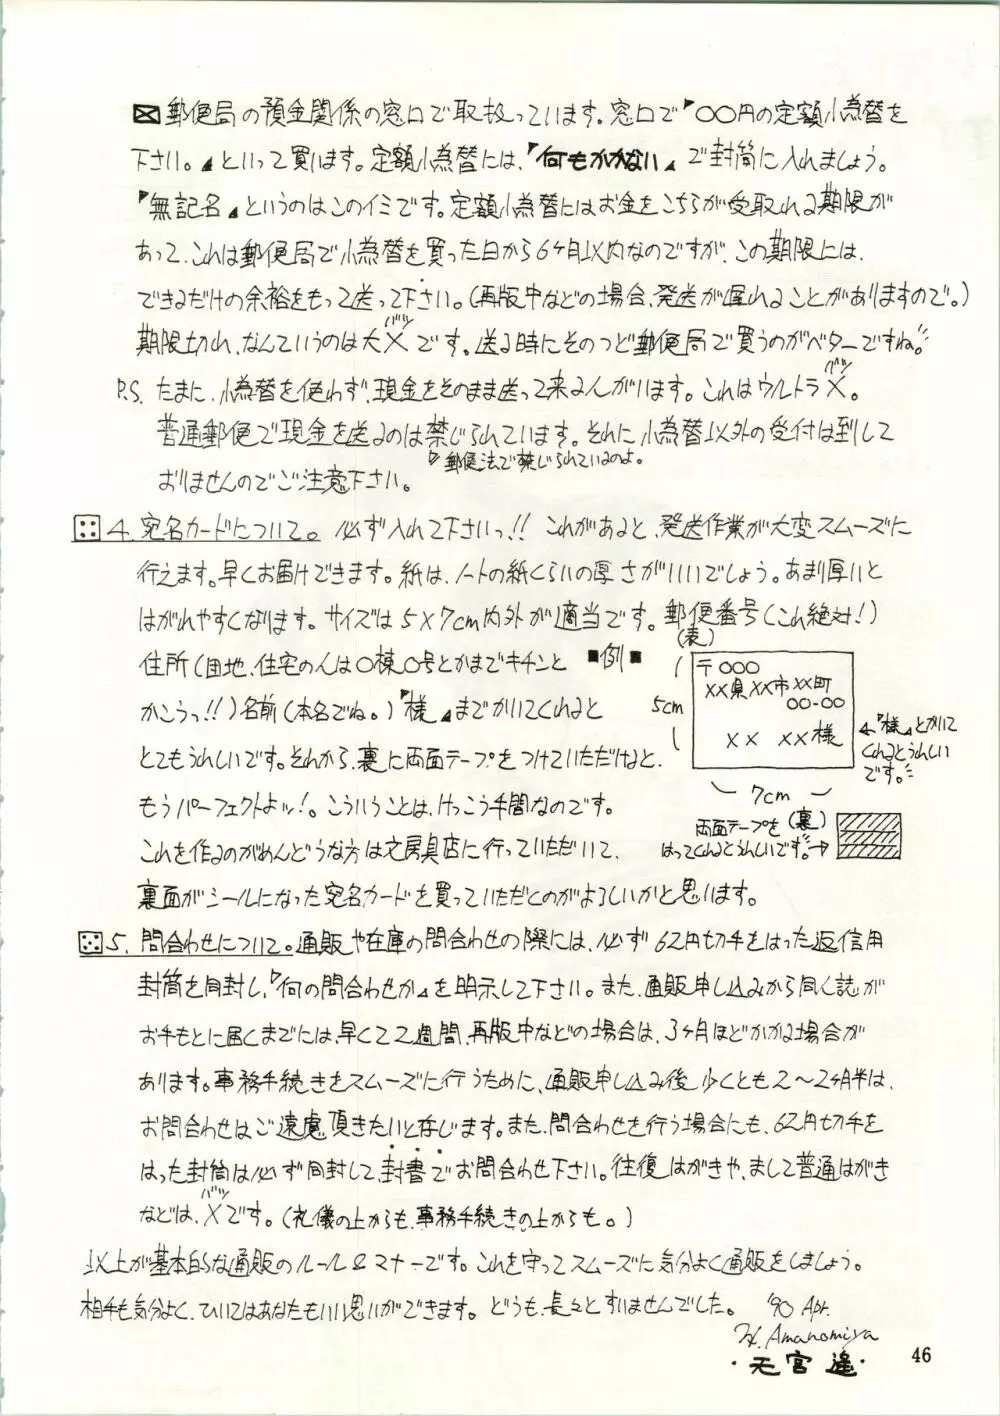 郵便局の預金関係の窓口で取扱っています。窓口で『〇〇円の定額小為替を
下さい。』といって買います。定額小為替には、『何もかかない』で封筒に入れましょう。
『無記名』というのはこのイミです。定額小為替にはお金をこちらが受取れる期限が
あって、これは郵便局で小為替を買った日から6ヶ月以内なのですが、この期限には、
できるだけの余裕をもって送って下さい。(再版中などの場合、発送が遅れることがありますので。)
期限切れ、なんていうのは大×バツです。送る時にそのつど郵便局で買うのがベターですね。
P.S. たまに、小為替を使わず、現金をそのまま送って来る人がいます。これはウルトラ×バツ。
普通郵便で現金を送るのは禁じられています。それに小為替以外の受付は到して
郵便法で禁じられているのよ。
おりませんのでご注意下さい。
4. 宛名カードについて。必ず入れて下さいっ!! これがあると、発送作業が大変スムーズに
行えます。早くお届けできます。紙は、ノートの紙くらいの厚さがいいでしょう。あまり厚いと
はがれやすくなります。サイズは5×7cm内外が適当です。郵便番号(これ絶対!)
住所(団地、住宅の人は〇棟〇号とかまでキチンと
かこうっ!!)名前(本名でね。)『様』までかいてくれると
とてもうれしいです。それから、裏に両面テープをつけていただけると、
もうパーフェクトよッ!。こういうことは、けっこう手間なのです。
これを作るのがめんどうな方は文房具店に行っていただいて、
裏面がシールになった宛名カードを買っていただくのがよろしいかと思います。
■例■
(表)
5cm
〒〇〇〇
××県××市××町
〇〇-〇〇
×× ××様
『様』とかいて
くれるとうれしい
です。
7cm
両面テープを(裏)
はってくれるとうれしいです。→
5. 問合わせについて。通販や在庫の問合わせの際には、必ず62円切手をはった返信用
封筒を同封し、『何の問合わせか』を明示して下さい。また、通販申し込みから同人誌が
お手もとに届くまでには、早くて2週間、再版中などの場合は、3ヶ月ほどかかる場合が
あります。事務手続きをスムーズに行うために、通販申し込み後少くとも2〜2ヶ月半は、
お問合わせはご遠慮頂きたいと存じます。また、問合わせを行う場合にも、62円切手を
はった封筒は必ず同封して、封書でお問合わせ下さい。往復はがきや、まして普通はがき
などは、×バツです。(礼儀の上からも、事務手続きの上からも。)
以上が基本的な通販のルール&マナーです。これを守ってスムーズに気分よく通販をしましょう。
相手も気分よく、ひいてはあなたもいい思いができます。どうも、長々とすいませんでした。 '90 Apr.
H. Amanomiya
・天宮遙・
46